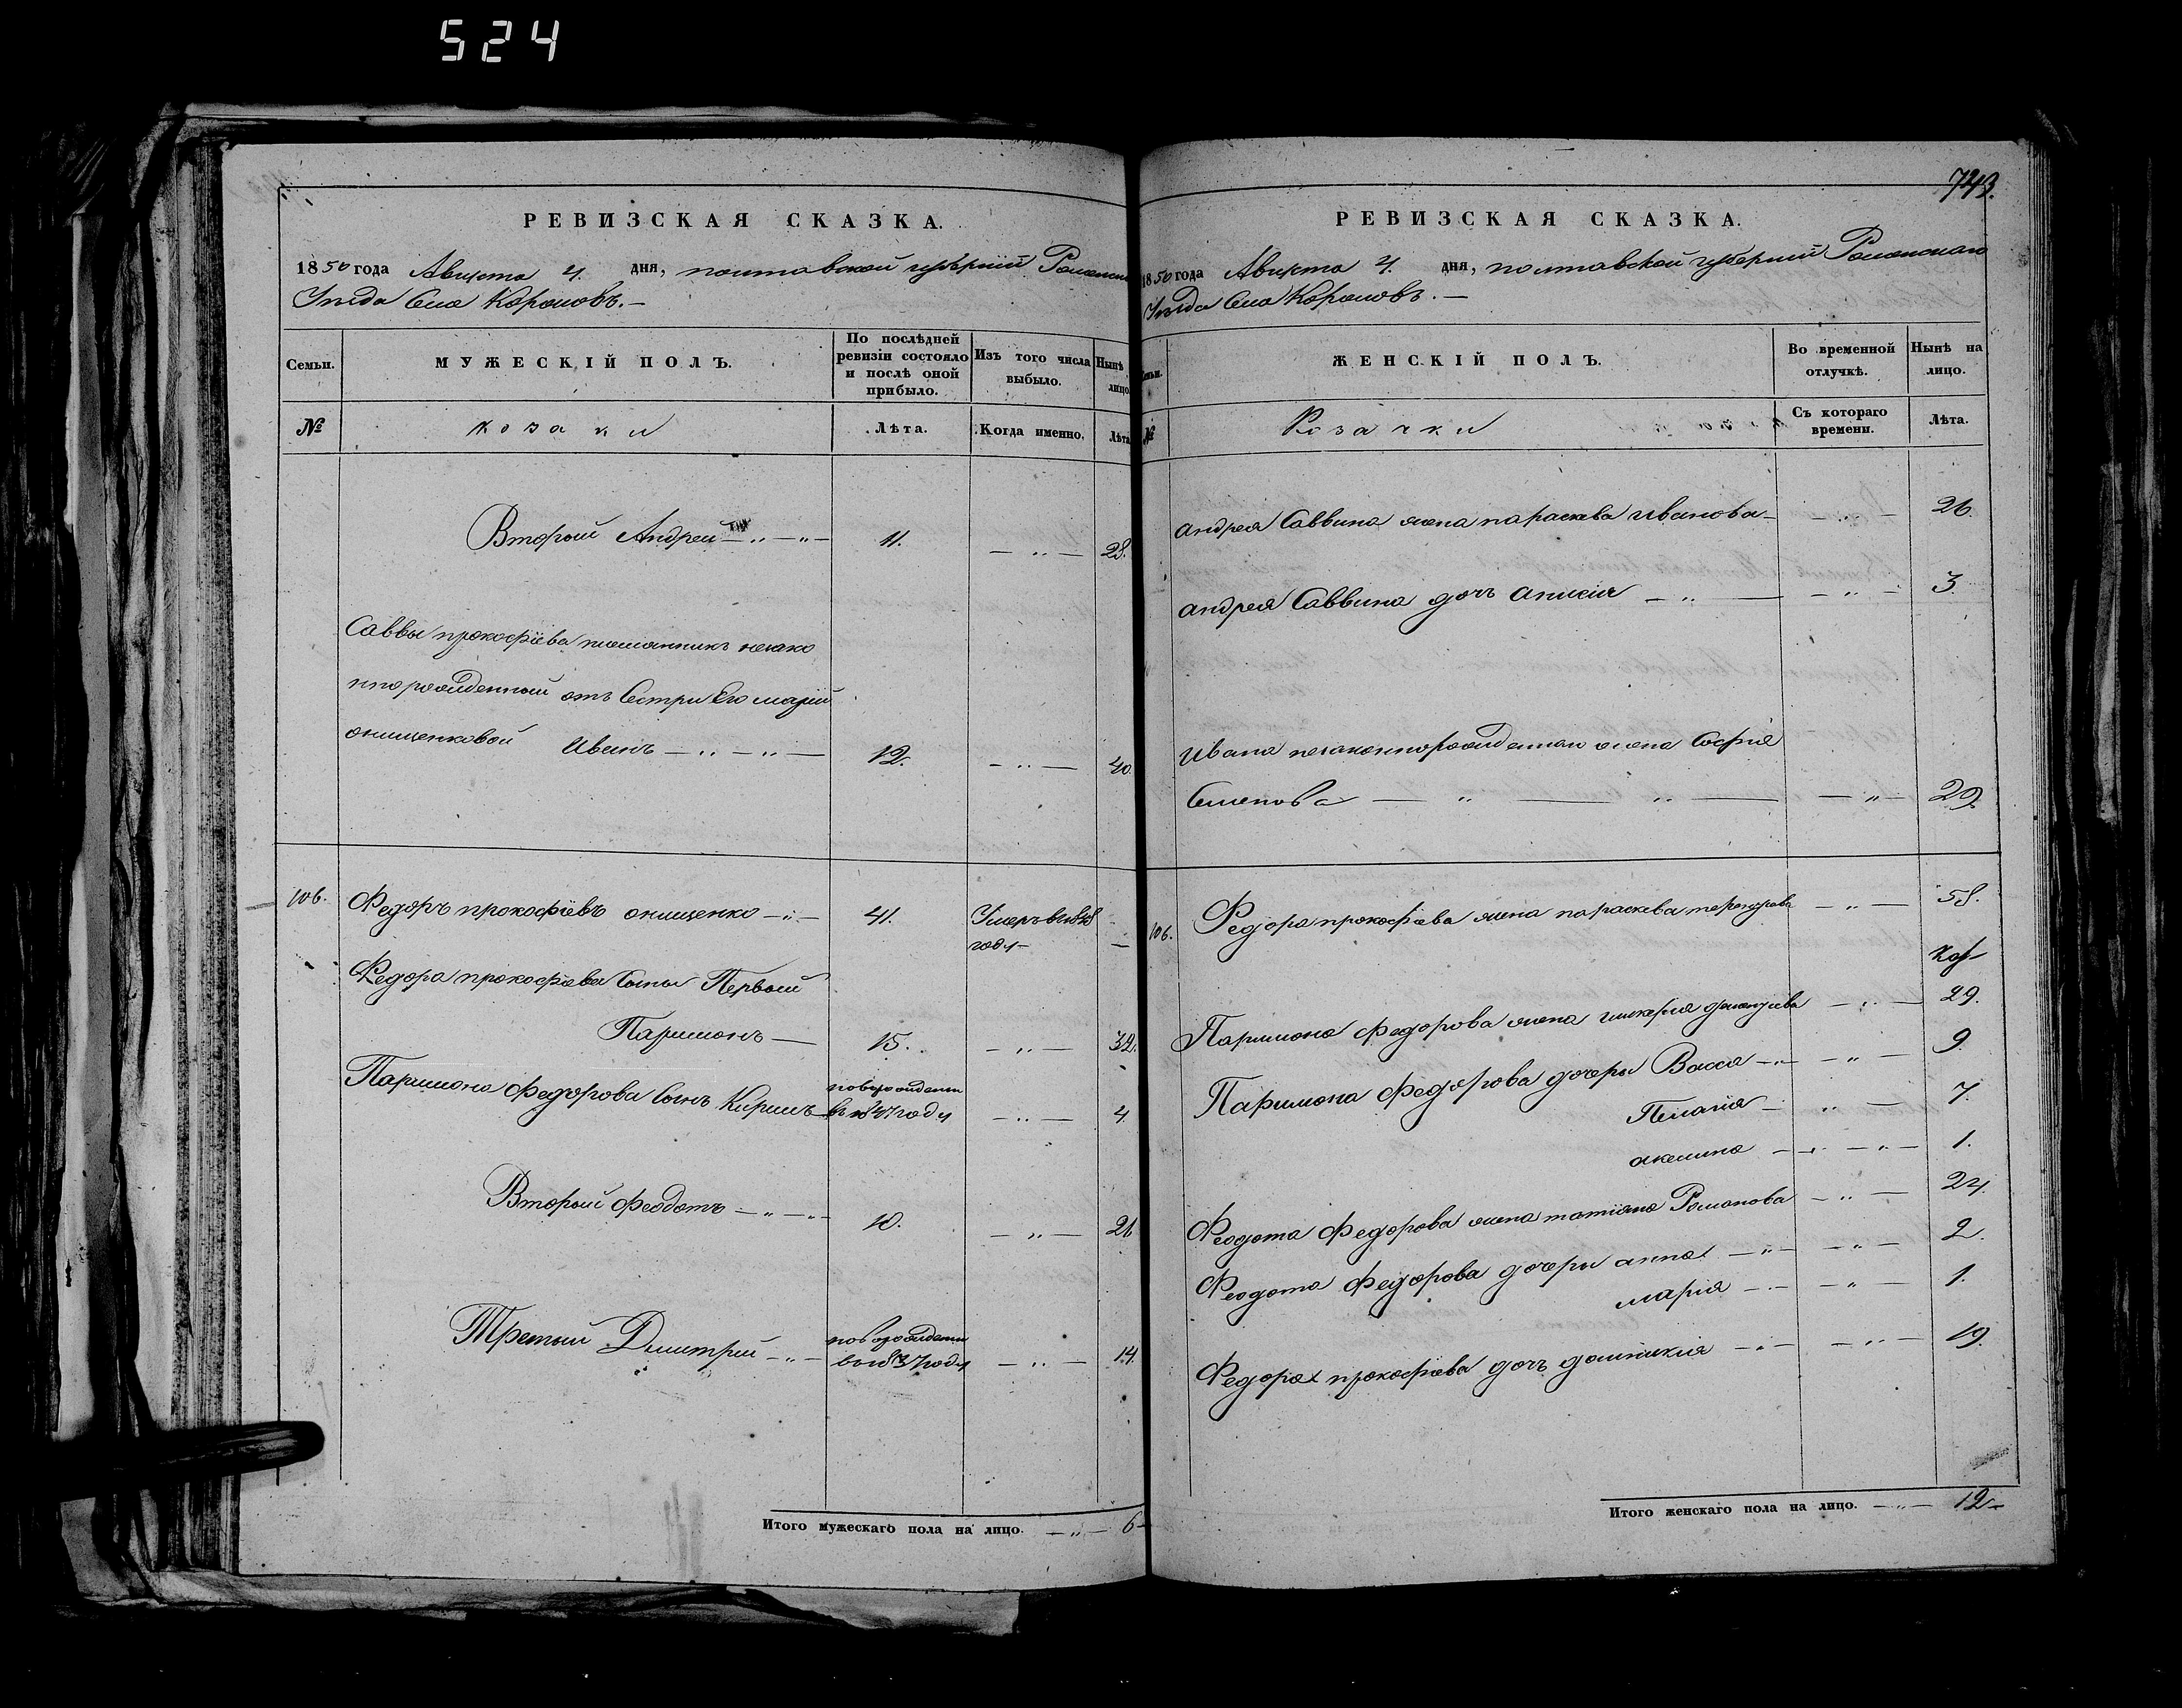 524
РЕВИЗСКАЯ СКАЗКА.
1850 года Августа 4. дня, полтавской губерніи Роменска
Уезда Села Коровинъ.—
Семьи.
МУЖЕСКІЙ ПОЛЪ.
По послѣдней ревизіи состояло и послѣ оной прибыло.
Изъ того числа выбыло.
Нынѣ лицо
№
козаки
Лѣта.
Когда именно.
Лѣта
Второй Андрей — „ — „ —
11.
— „ —
28.
Саввы прокофіева племянникъ незако
ннорожденный отъ Сестри Его маріи
онищенковой Иванъ — „ — „ —
12.
— „ —
40.
106.
Федоръ прокофіевъ онищенко — „ —
41.
Умеръ в 1848
году
—
Федора прокофіева Сыны Первый
Паримонъ —
15.
— „ —
32.
Паримона Федорова Сынъ Кирилъ
новорожденъ
въ 1847 году
— „ —
4.
Второй Феодотъ — „ — „ —
10.
— „ —
26
Третый Димитрій — „ —
новорожденъ
въ 1837 году
— „ —
14.
Итого мужескаго пола на лицо. — „ — 6 —
743.
РЕВИЗСКАЯ СКАЗКА.
1850 года Августа 4. дня, полтавской губерніи Роменскаго
Уезда Села .—
Семьи.
ЖЕНСКІЙ ПОЛЪ.
Во временной отлучкѣ.
Нынѣ на лицо.
№
Козачки
Съ котораго времени.
Лѣта.
андрея Саввина жена параскева иванова —
— „ —
26.
андрея Саввина дочь — „ —
— „ —
3
ивана незаконнорожденнаго жена Софія
Семенова — „ — „ —
— „ —
29.
106.
Федора прокофіева жена параскева
— „ —
58.
Паримона Федорова жена
— „ —
29.
Паримона Федорова дочери Васса — „ —
— „ —
9
Пелагія —
„ —
7.
акилина —
— „ —
1.
Феодота Федорова жена татіана Романова
— „ —
24.
Феодота Федорова дочери анна — „ —
— „ —
2.
марія —
— „ —
1.
Федора прокофіева дочь домникія — „ —
— „ —
19.
Итого женскаго пола на лицо. — „ — 12 —